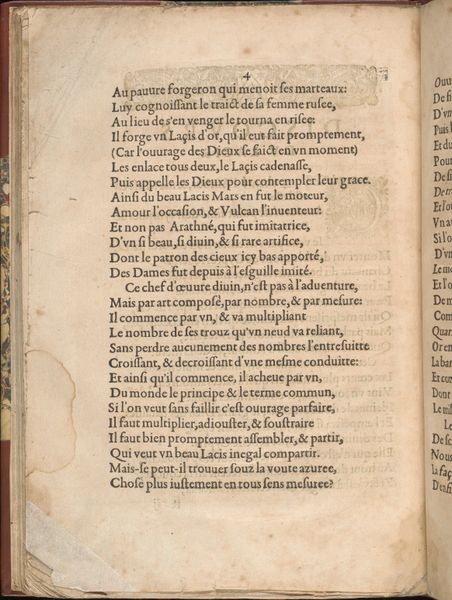 4
Au pauure forgeron qui menoit ses marteaux:
Luy cognoissant le traict de sa femme rusee,
Au lieu de s'en venger le tourna en risee:
Il forge vn Laçis d'or, qu'il eut fait promptement,
(Car l'ouurage des Dieux se faict en vn moment)
Les enlace tous deux, le Laçis cadenasse,
Puis appelle les Dieux pour contempler leur grace.
Ainsi du beau Lacis Mars en fut le moteur,
Amour l'occasion, & Vulcan l'inuenteur:
Et non pas Arathné, qui fut imitatrice,
D'vn si beau, si diuin, & si rare artifice,
Dont le patron des cieux icy bas apporté,
Des Dames fut depuis à l'esguille imité.
Ce chef d'œuure diuin, n'est pas à l'aduenture,
Mais par art composé, par nombre, & par mesure:
Il commence par vn, & va multipliant
Le nombre de ses trouz qu'vn neud va reliant,
Sans perdre aucunement des nombres l'entresuitte
Croissant, & decroissant d'vne mesme conduitte:
Et ainsi qu'il commence, il acheue par vn,
Du monde le principe & le terme commun,
Si l'on veut sans faillir c'est ouurage parfaire,
Il faut multiplier, adiouster, & soustraire
Il faut bien promptement assembler, & partir,
Qui veut vn beau Lacis inegal compartir.
Mais-se peut-il trouuer souz la voute azuree,
Chose plus iustement en tous sens mesuree?